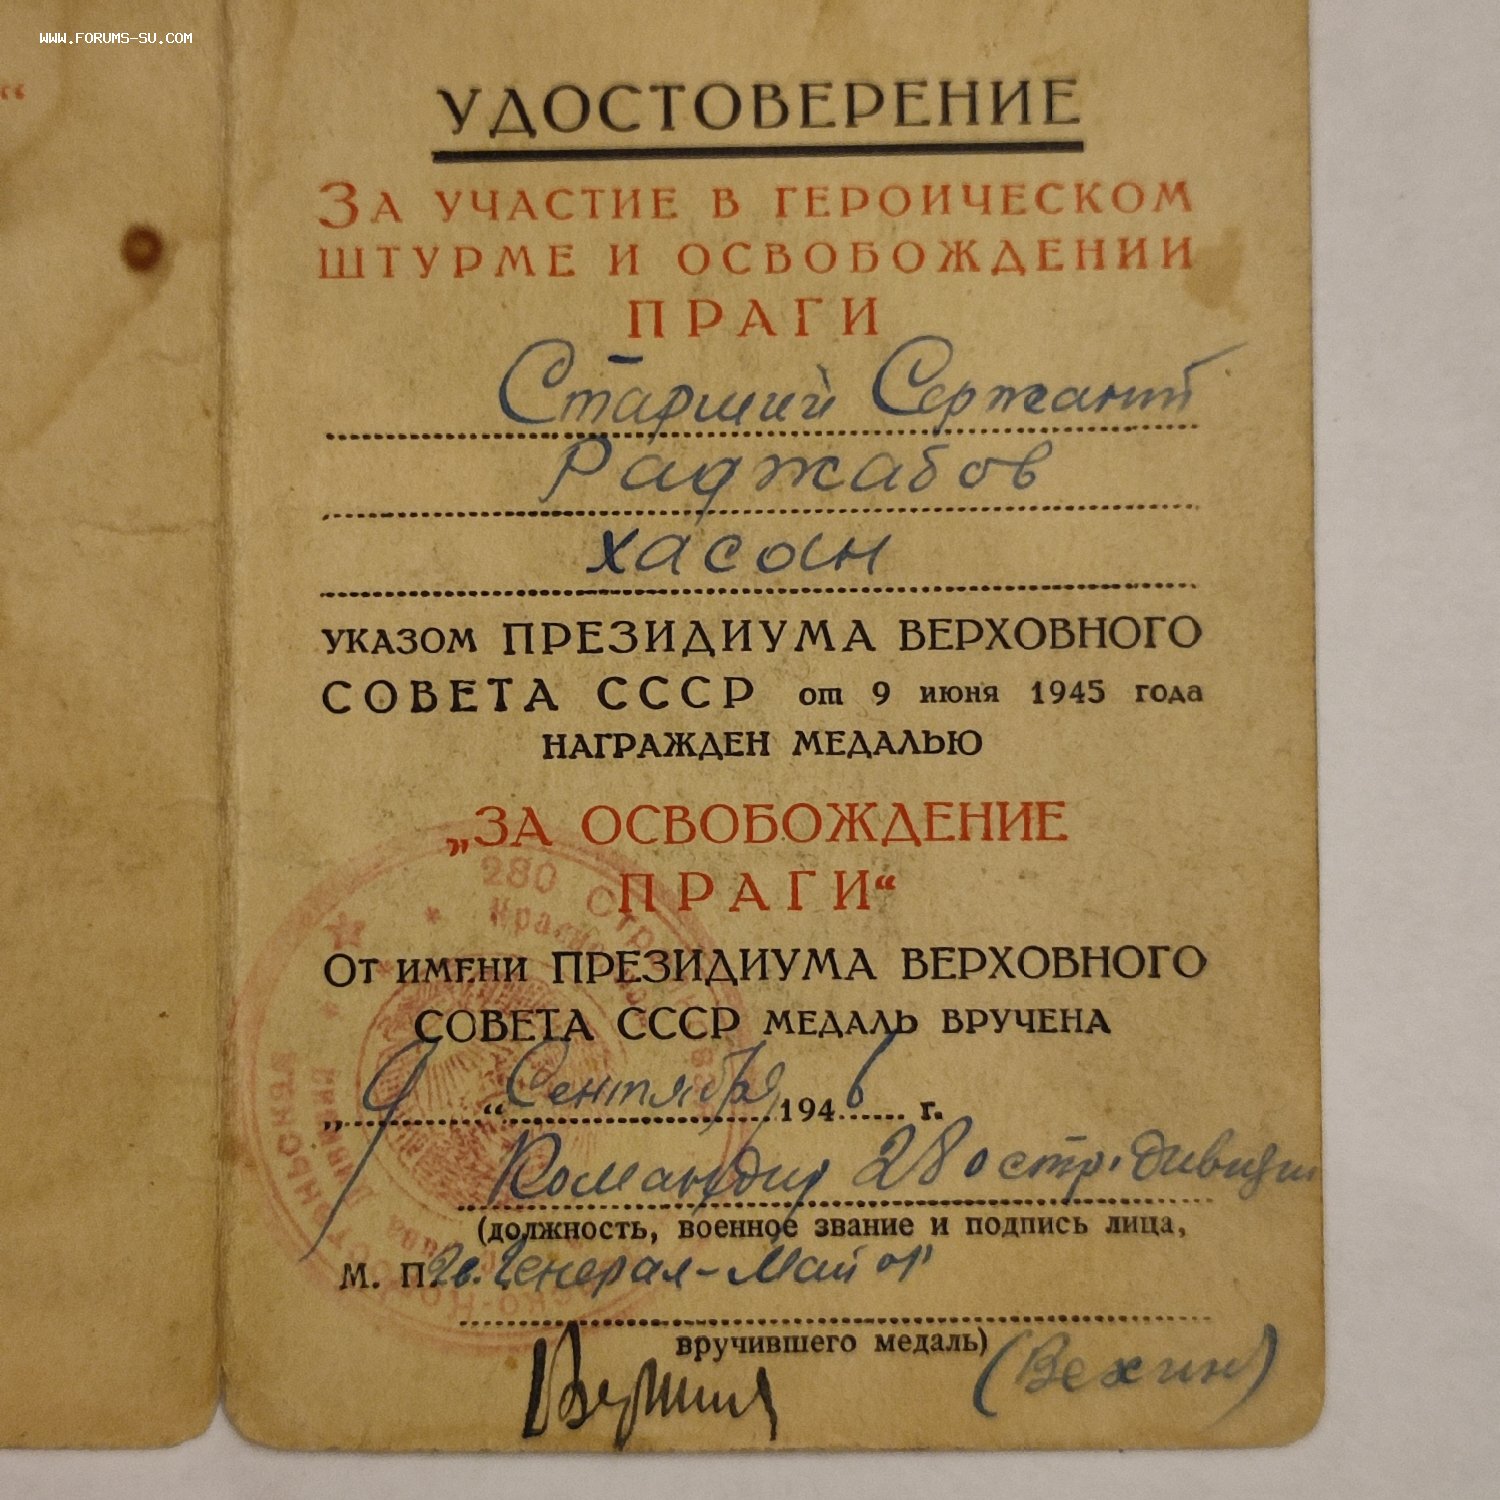 WWW.FORUMS-SU.COM
“
УДОСТОВЕРЕНИЕ
ЗА УЧАСТИЕ В ГЕРОИЧЕСКОМ
ШТУРМЕ И ОСВОБОЖДЕНИИ
ПРАГИ
Старший Сержант
Раджабов
Хасан
УКАЗОМ ПРЕЗИДИУМА ВЕРХОВНОГО
СОВЕТА СССР от 9 июня 1945 года
НАГРАЖДЕН МЕДАЛЬЮ
„ЗА ОСВОБОЖДЕНИЕ
ПРАГИ“
280
ОТ ИМЕНИ ПРЕЗИДИУМА ВЕРХОВНОГО
СОВЕТА СССР МЕДАЛЬ ВРУЧЕНА
„9“ Сентября 1946 г.
Командир 280 стр. дивизии
(должность, военное звание и подпись лица,
М. П. Гв. Генерал-Майор
вручившего медаль)
(Вехин)